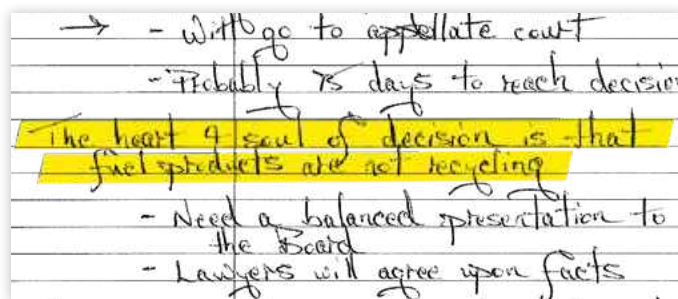 → - Will go to appellate court
- Probably 75 days to reach decision
The heart & soul of decision is that
fuel products are not recycling
- Need a balanced presentation to
the Board
- Lawyers will agree upon facts